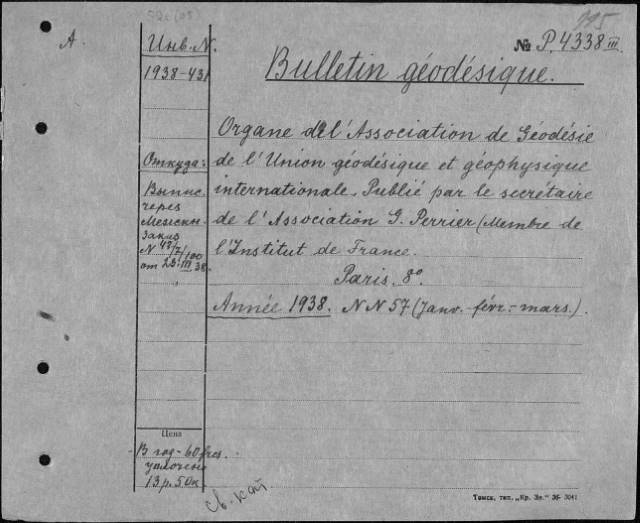 А.
Инв. N.
1938-43
№ P. 4338 III
Bulletin géodésique.
Organe de l'Association de Géodésie
de l'Union géodésique et géophysique
internationale. Publié par le secrétaire
de l'Association G. Perrier (Membre de
l'Institut de France.
Paris. 8°
Année 1938. NN 57 (Janv.-févr.-mars.).
Откуда:
Выпис.
через
Заказ
N 48/2/100
от 23 III 38.
Цена
В год - 60 frcs.
уплочено
13 р. 50 к.
св. кат.
Томск, тип. „Кр. Зн." 36 3041